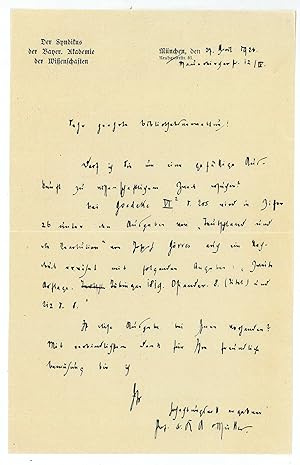 Der Syndikus
der Bayer. Akademie
der Wissenschaften
München, den 29. 1924
Neuhauserstr. 51.
12/III.
Sehr geehrte Bibliotheksverwaltung!
Darf ich Sie um eine gefällige Aus-
kunft zu wissenschaftlichem Zweck ersuchen?
bei Goedeke VI² S. 205 wird in Ziffer
26 unter den Ausgaben von „Teutschland und
die Revolution" von Josef Görres auch ein Nach-
druck erwähnt mit folgenden Angaben: „Zweite
Auflage. Tübingen 1819. Osiander. 8. (Titel) und
212 S. 8."
Ist diese Ausgabe bei Ihnen vorhanden?
Mit verbindlichstem Dank für Ihre freundliche
Bemühung bin ich
Ihr
sehr ergebener
Prof. Dr. K A Müller